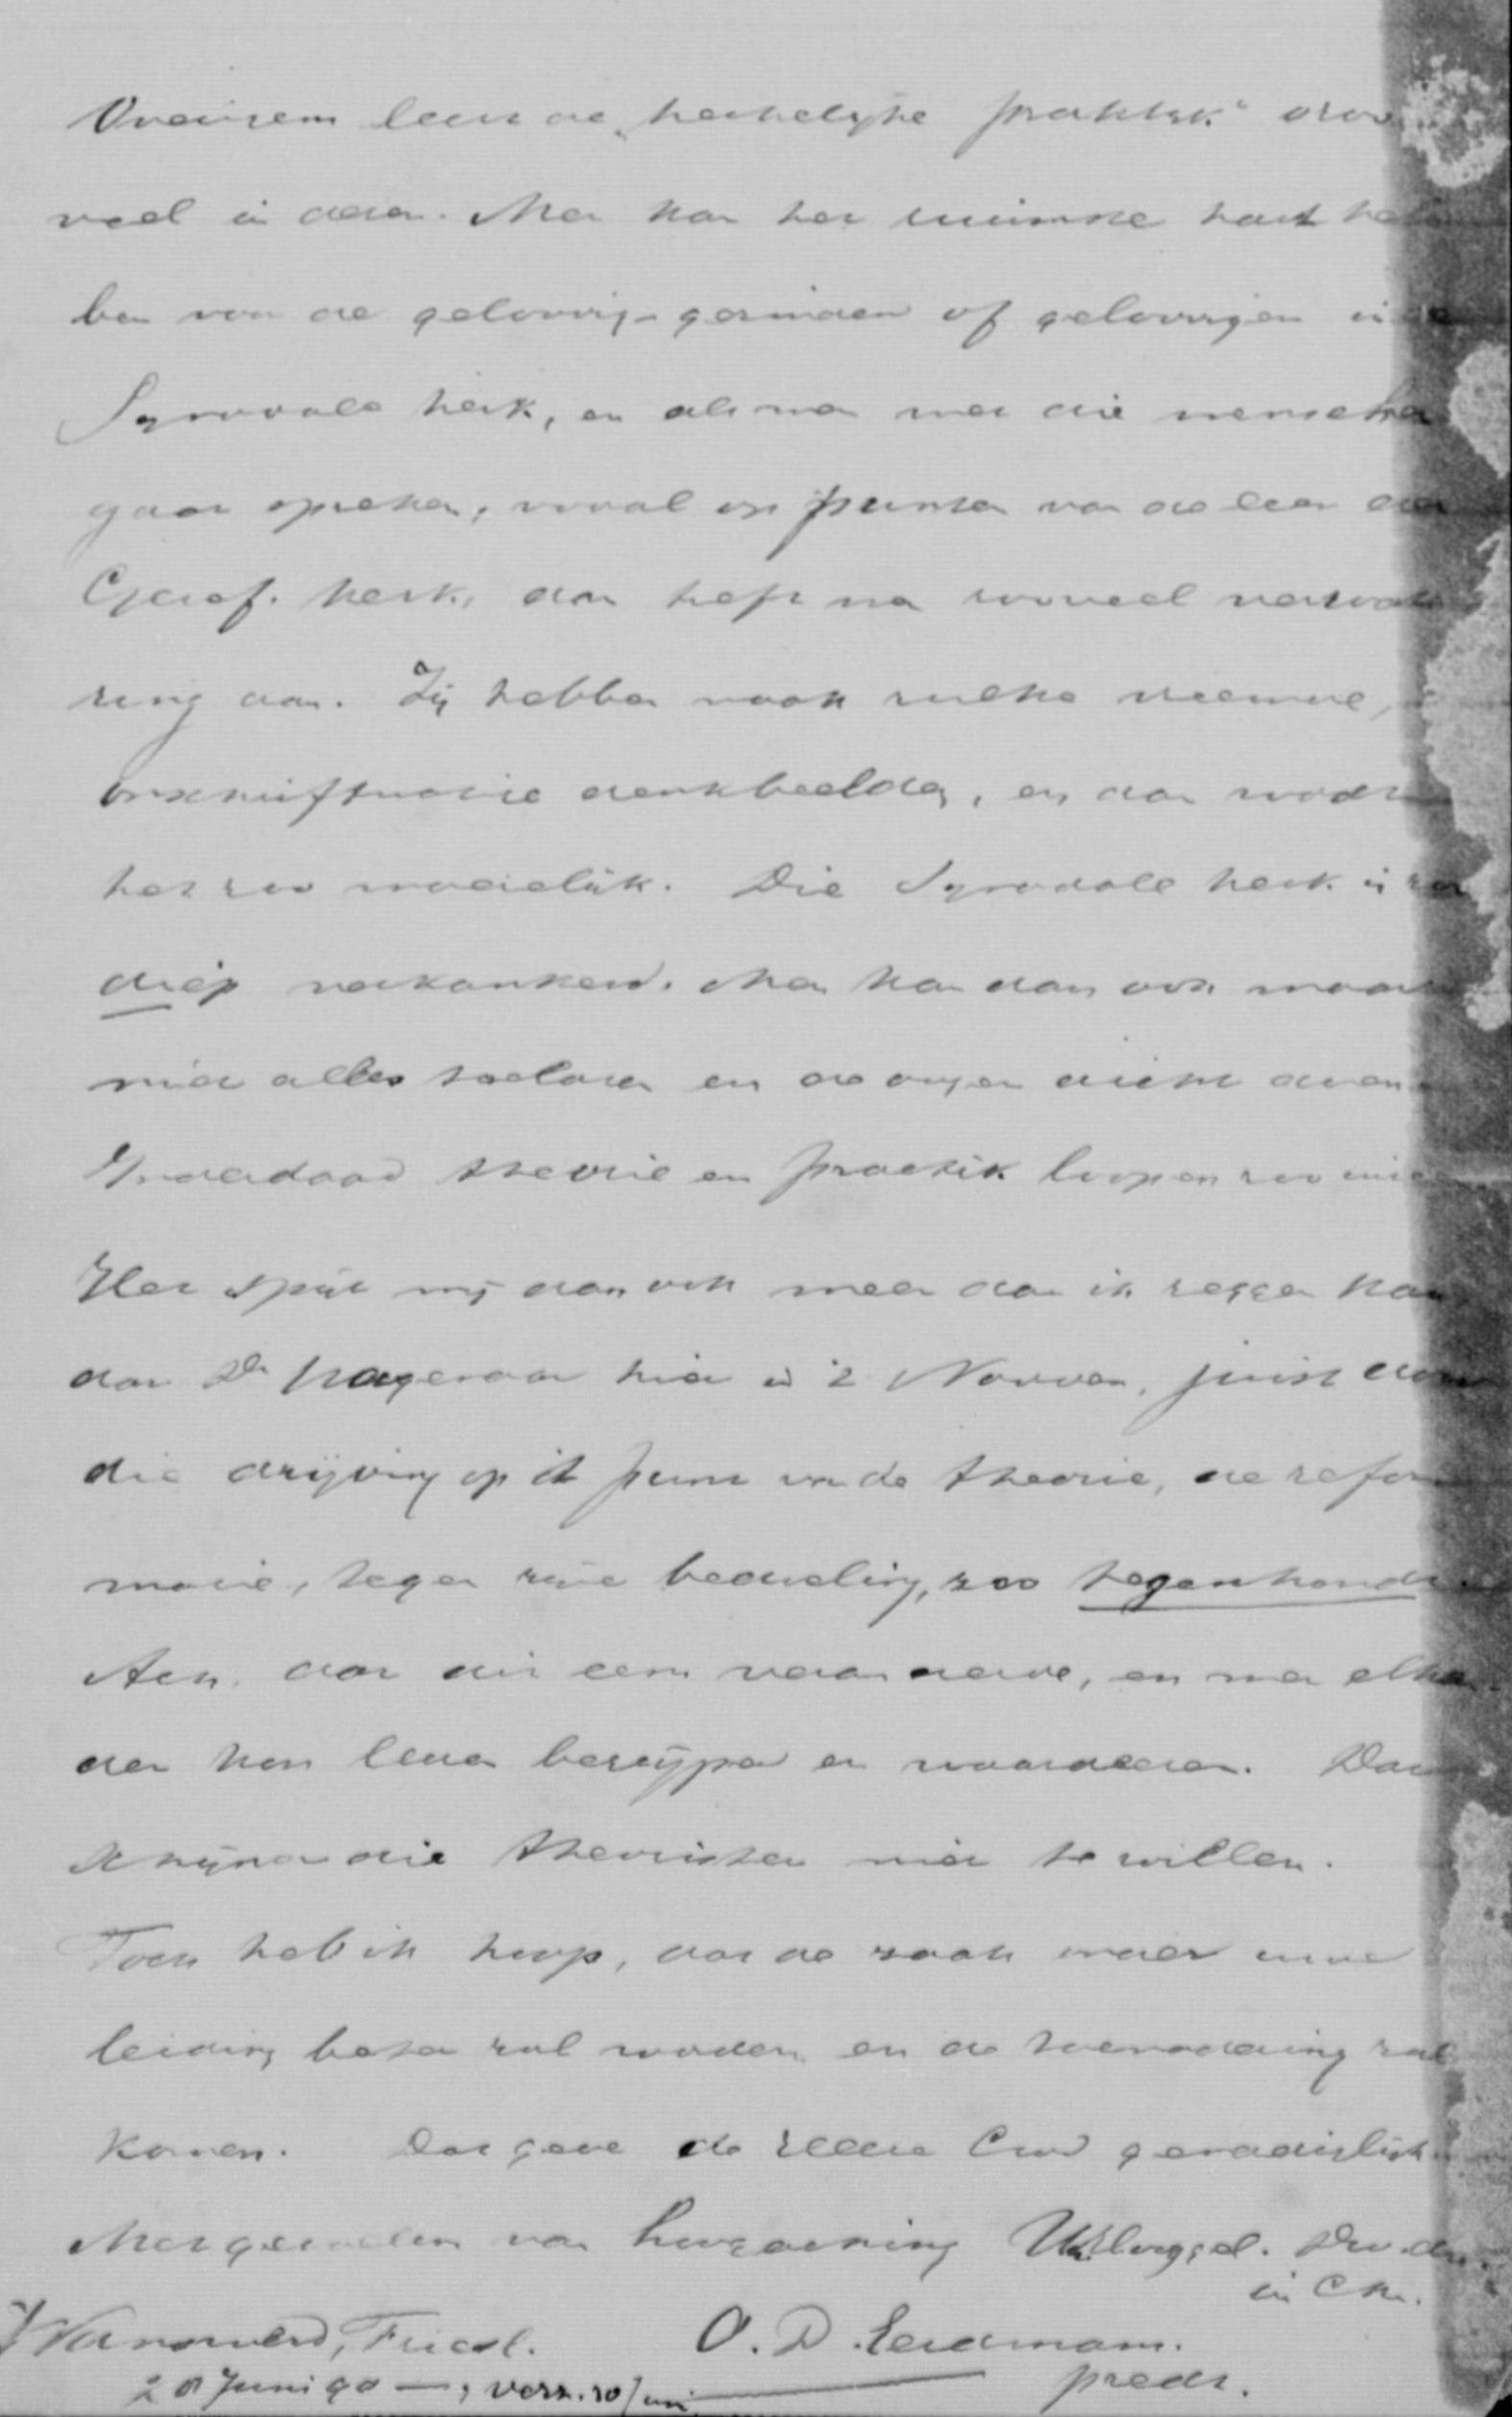 Overigens leert de „kerkelijke praktijk" ons
veel in dezen. Men kan het ruimste hart heb
ben voor de geloovig-gezinden of geloovigen in de
Synodale kerk, en als men met die menschen
gaat spreken, vooral op punten van de leer der
Geref. kerk, dan treft men zooveel
ring aan. Zij hebben vaak zulke vreemde,
onschriftmatige denkbeelden, en dan wordt
het zoo moeielijk. Die Synodale kerk is zoo
diep verkankerd. Men kan dan ook maar
niet alles toelaten en de oogen dicht doen.
Inderdaad theorie en practik loopen zoo
Het spijt mij dan ook meer dan ik zeggen kan,
dat Ds hier in 't Noorden, juist door
die drijving op dit punt van de theorie, de refor
matie, tegen zijne bedoeling, zoo tegenhoudt.
Ach, dat dit eens veranderde, en men elkan
der kon leeren begrijpen en waardeeren. Dat
schijnen die theoristen niet te willen.
Toch heb ik hoop, dat de zaak onder uwe
leiding beter zal worden en de toenadering zal
komen. Dat geve de Heere God genadiglijk.
Met gevoelen van hoogachting UwEerw. dw. dr.
in Chr.
Wanswerd, Friesl. O. D. Eerdmans.
28 Juni 90 —, verz. 30 Juni pred.